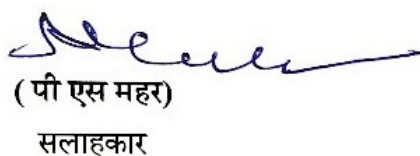 ( पी एस महर)
सलाहकार